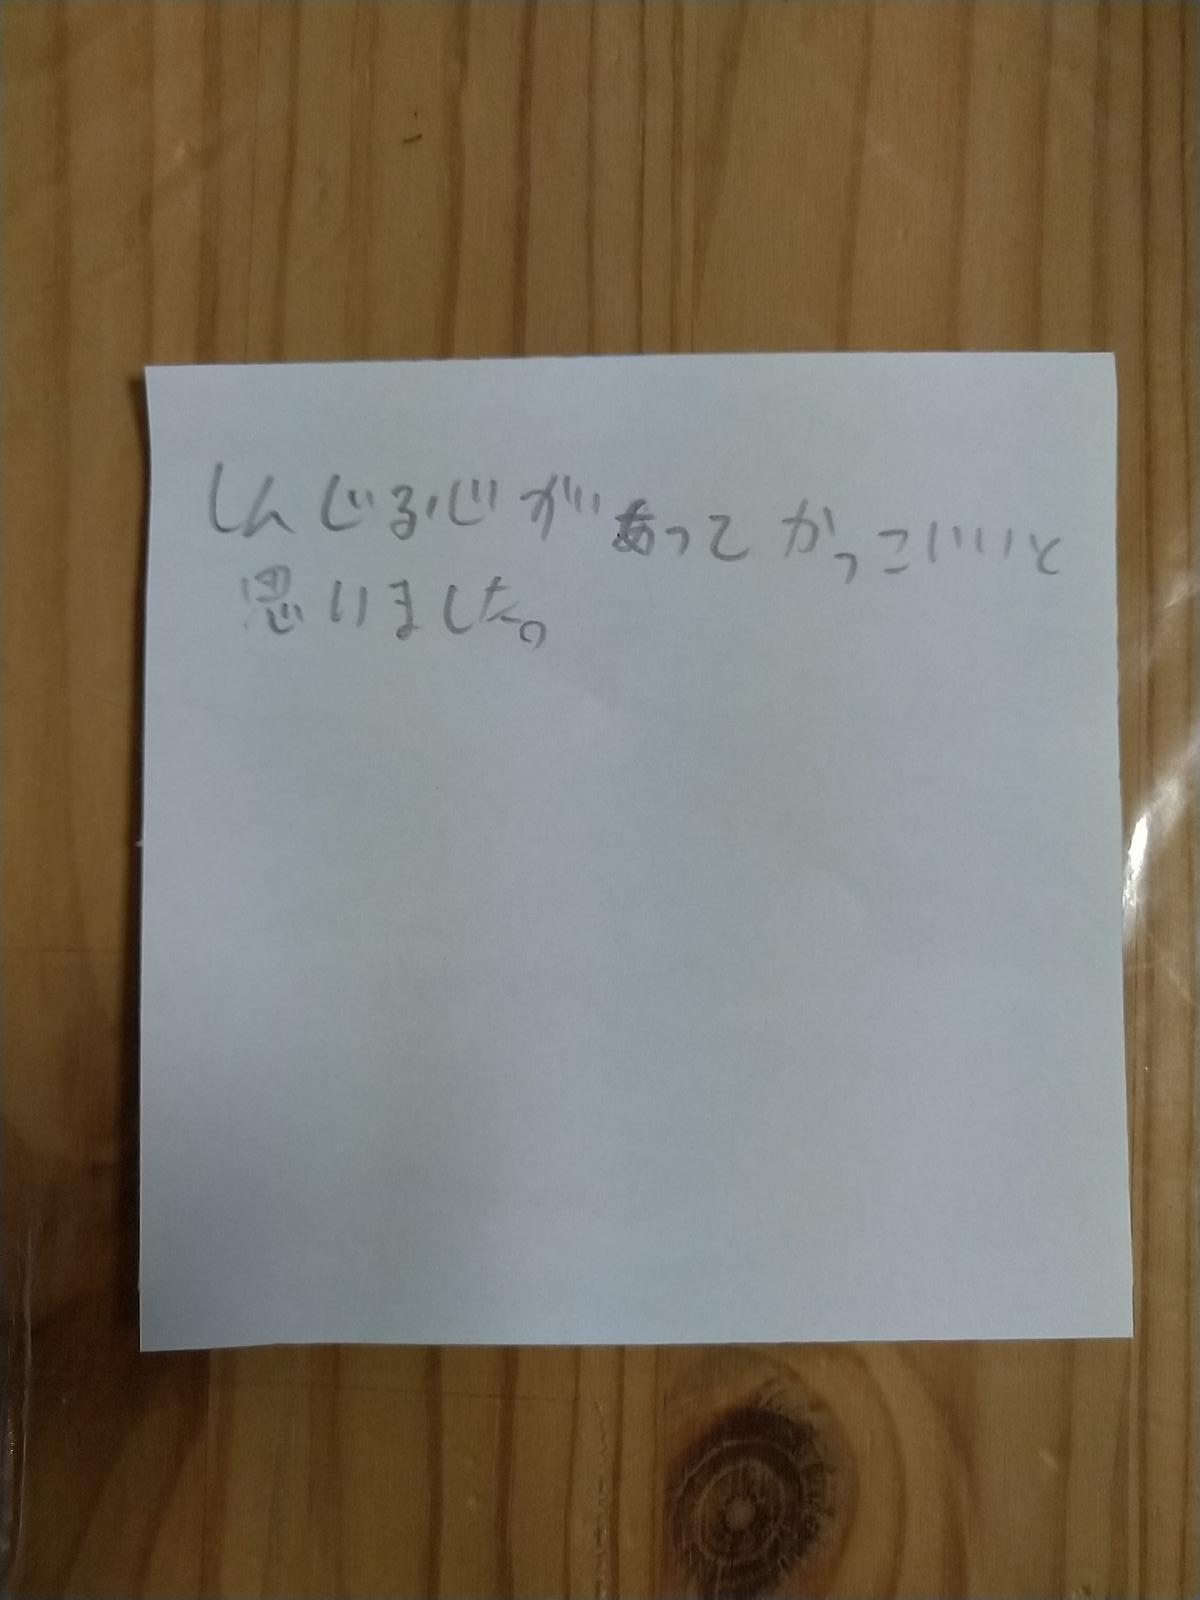 しんじるじがあってかっこいいと
思いました。